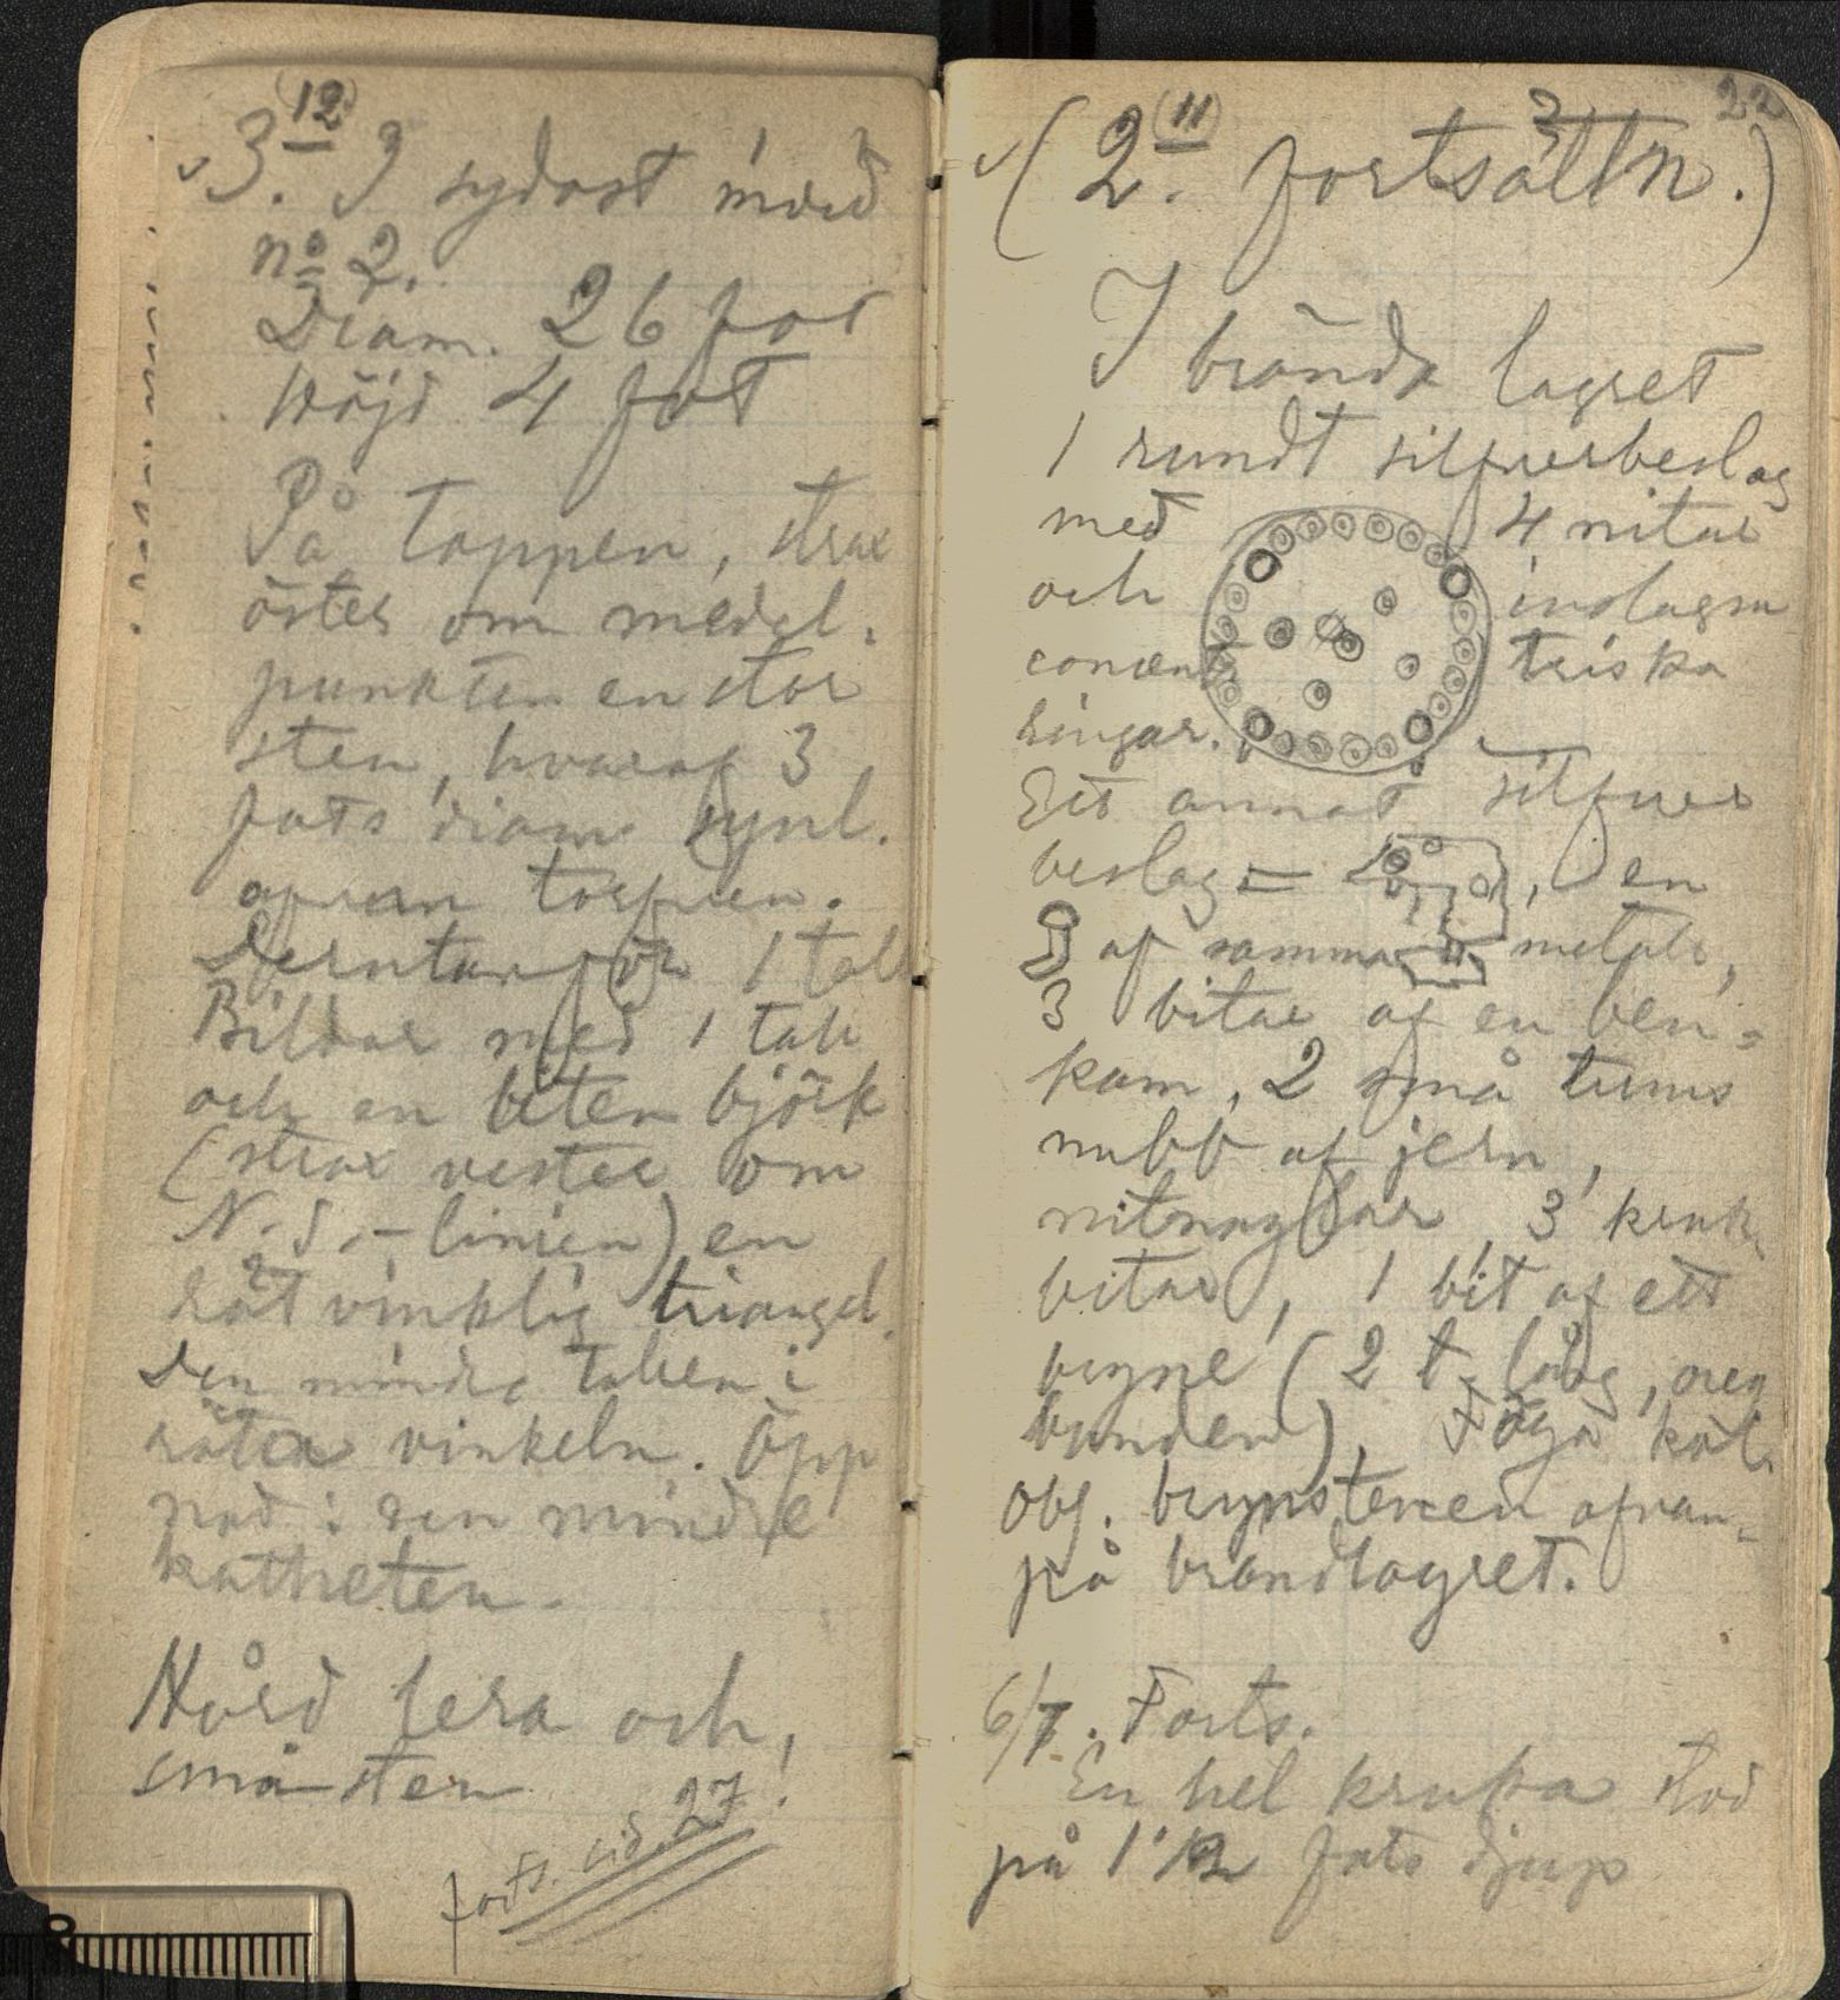 (12)
3. I sydost mvid
no 2.
Diam. 26 fot
Höjd 4 fot
På toppen, strax
öster om medel-
punkten en stor
sten, hvaraf 3
fots diam synl.
ofvan torfven.
Derutanför 1 tall
Bildar med 1 tall
och en liten björk
(strax vester om
N.S.-linien) en
rätvinklig triangel.
Den mindre tallen i
räta vinkeln. Öpp
nad i den mindre
katheten.
Hård lera och
småsten!
forts. sid. 27
22
(11)
(2. fortsättn.)
I brända lagret
1 rundt silfverbeslag
med 4 nitar
och inslagna
concentriska
ringar.
Ett annat silfver
beslag = , en
af samma metall,
3 bitar af en ben-
kam, 2 små tums
nubb af jern,
nitnaglar, 3 kruk-
bitar, 1 bit af ett
bryne (2 t. lång, oreg
bunden), Föga kol.
Obs. brynstenen ofvan-
på brandlagret.
6/7. Forts.
En hel kruka stod
på 1 1/2 fots djup